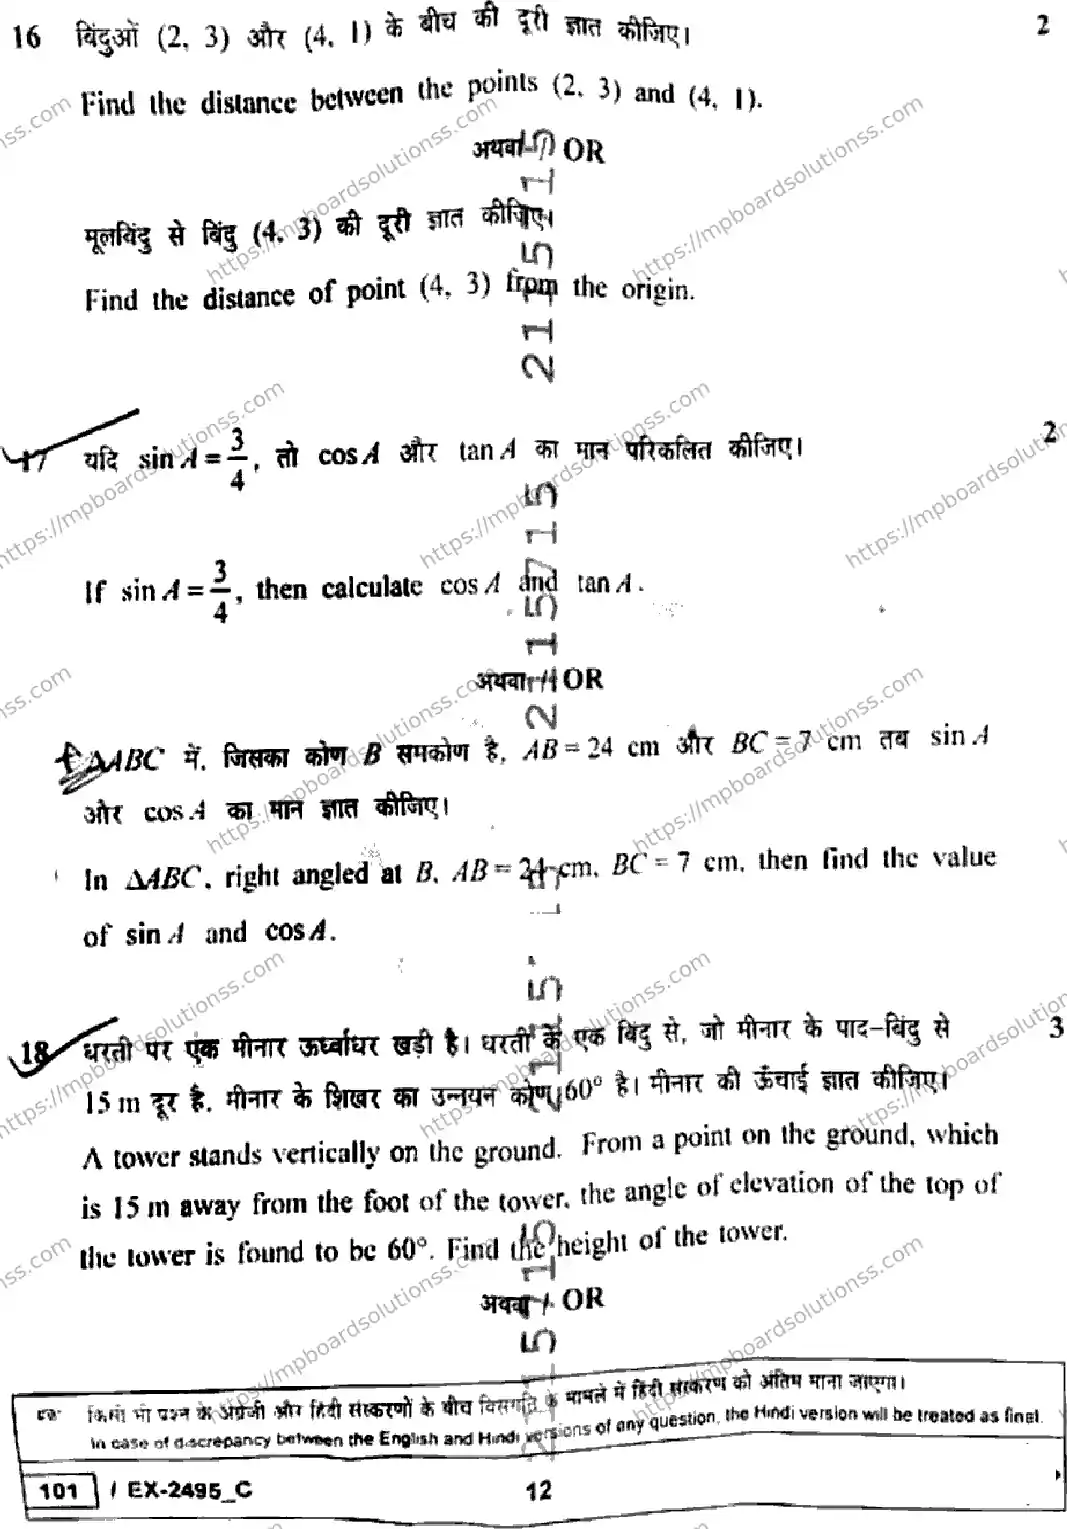 16 बिंदुओं (2, 3) और (4, 1) के बीच की दूरी ज्ञात कीजिए। 2
Find the distance between the points (2, 3) and (4, 1).
अथवा / OR
मूलबिंदु से बिंदु (4, 3) की दूरी ज्ञात कीजिए।
Find the distance of point (4, 3) from the origin.
17 यदि sin A = 3/4, तो cos A और tan A का मान परिकलित कीजिए। 2
If sin A = 3/4, then calculate cos A and tan A.
अथवा / OR
ΔABC में, जिसका कोण B समकोण है, AB = 24 cm और BC = 7 cm तब sin A
और cos A का मान ज्ञात कीजिए।
In ΔABC, right angled at B, AB = 24 cm, BC = 7 cm, then find the value
of sin A and cos A.
18 धरती पर एक मीनार ऊर्ध्वाधर खड़ी है। धरती के एक बिंदु से, जो मीनार के पाद-बिंदु से 3
15 m दूर है, मीनार के शिखर का उन्नयन कोण 60° है। मीनार की ऊँचाई ज्ञात कीजिए।
A tower stands vertically on the ground. From a point on the ground, which
is 15 m away from the foot of the tower, the angle of elevation of the top of
the tower is found to be 60°. Find the height of the tower.
अथवा / OR
किसी भी प्रश्न के अंग्रेजी और हिंदी संस्करणों के बीच विसंगति के मामले में हिंदी संस्करण को अंतिम माना जाएगा।
In case of discrepancy between the English and Hindi versions of any question, the Hindi version will be treated as final.
101 / EX-2495_C 12
https://mpboardsolutionss.com